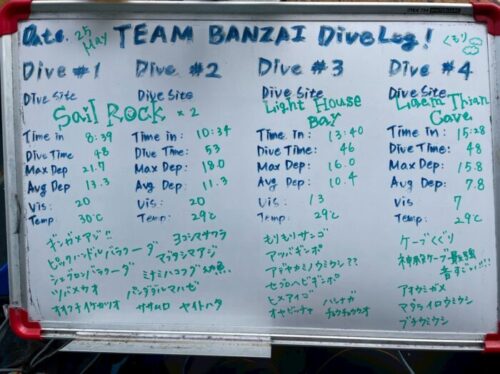 Date. 25 May TEAM BANZAI Dive Log! くもり
Dive #1 Dive #2 Dive #3 Dive #4
Dive Site Dive Site Dive Site Dive Site
Sail Rock ×2 Light House Bay Laem Thian Cave
Time in 8:39 Time in: 10:34 Time In: 13:40 Time in: 15:28
Dive Time 48 Dive Time: 53 Dive Time: 46 Dive Time: 48
Max Dep: 21.7 Max Dep: 18.0 Max Dep: 16.0 Max Dep: 15.8
Avg Dep: 13.3 Avg Dep: 11.3 Avg Dep: 10.4 Avg Dep: 7.8
Vis: 20 Vis: 20 Vis: 13 Vis: 7
Temp: 30℃ Temp: 29℃ Temp: 29℃ Temp: 29℃
ギンガメアジ!! ヨコシマサワラ もりもりサンゴ ケーブくぐり
ピックハンドルバラクーダ マブタシマアジ アツバギンポ 神殿ケーブ最強
シェブロンバラクーダ ミナミハコフグ 幼魚 アデヤカミノウミウシ?? 青すごい!!!
ツバメウオ パンダダルマハゼ セダカヘビギンポ アオウミガメ
オオクチイケカツオ ササムロ ヤイトハタ ヒメアイゴ マダライロウミウシ
オヤビッチャ ハシナガチョウチョウウオ ブチウミウシ